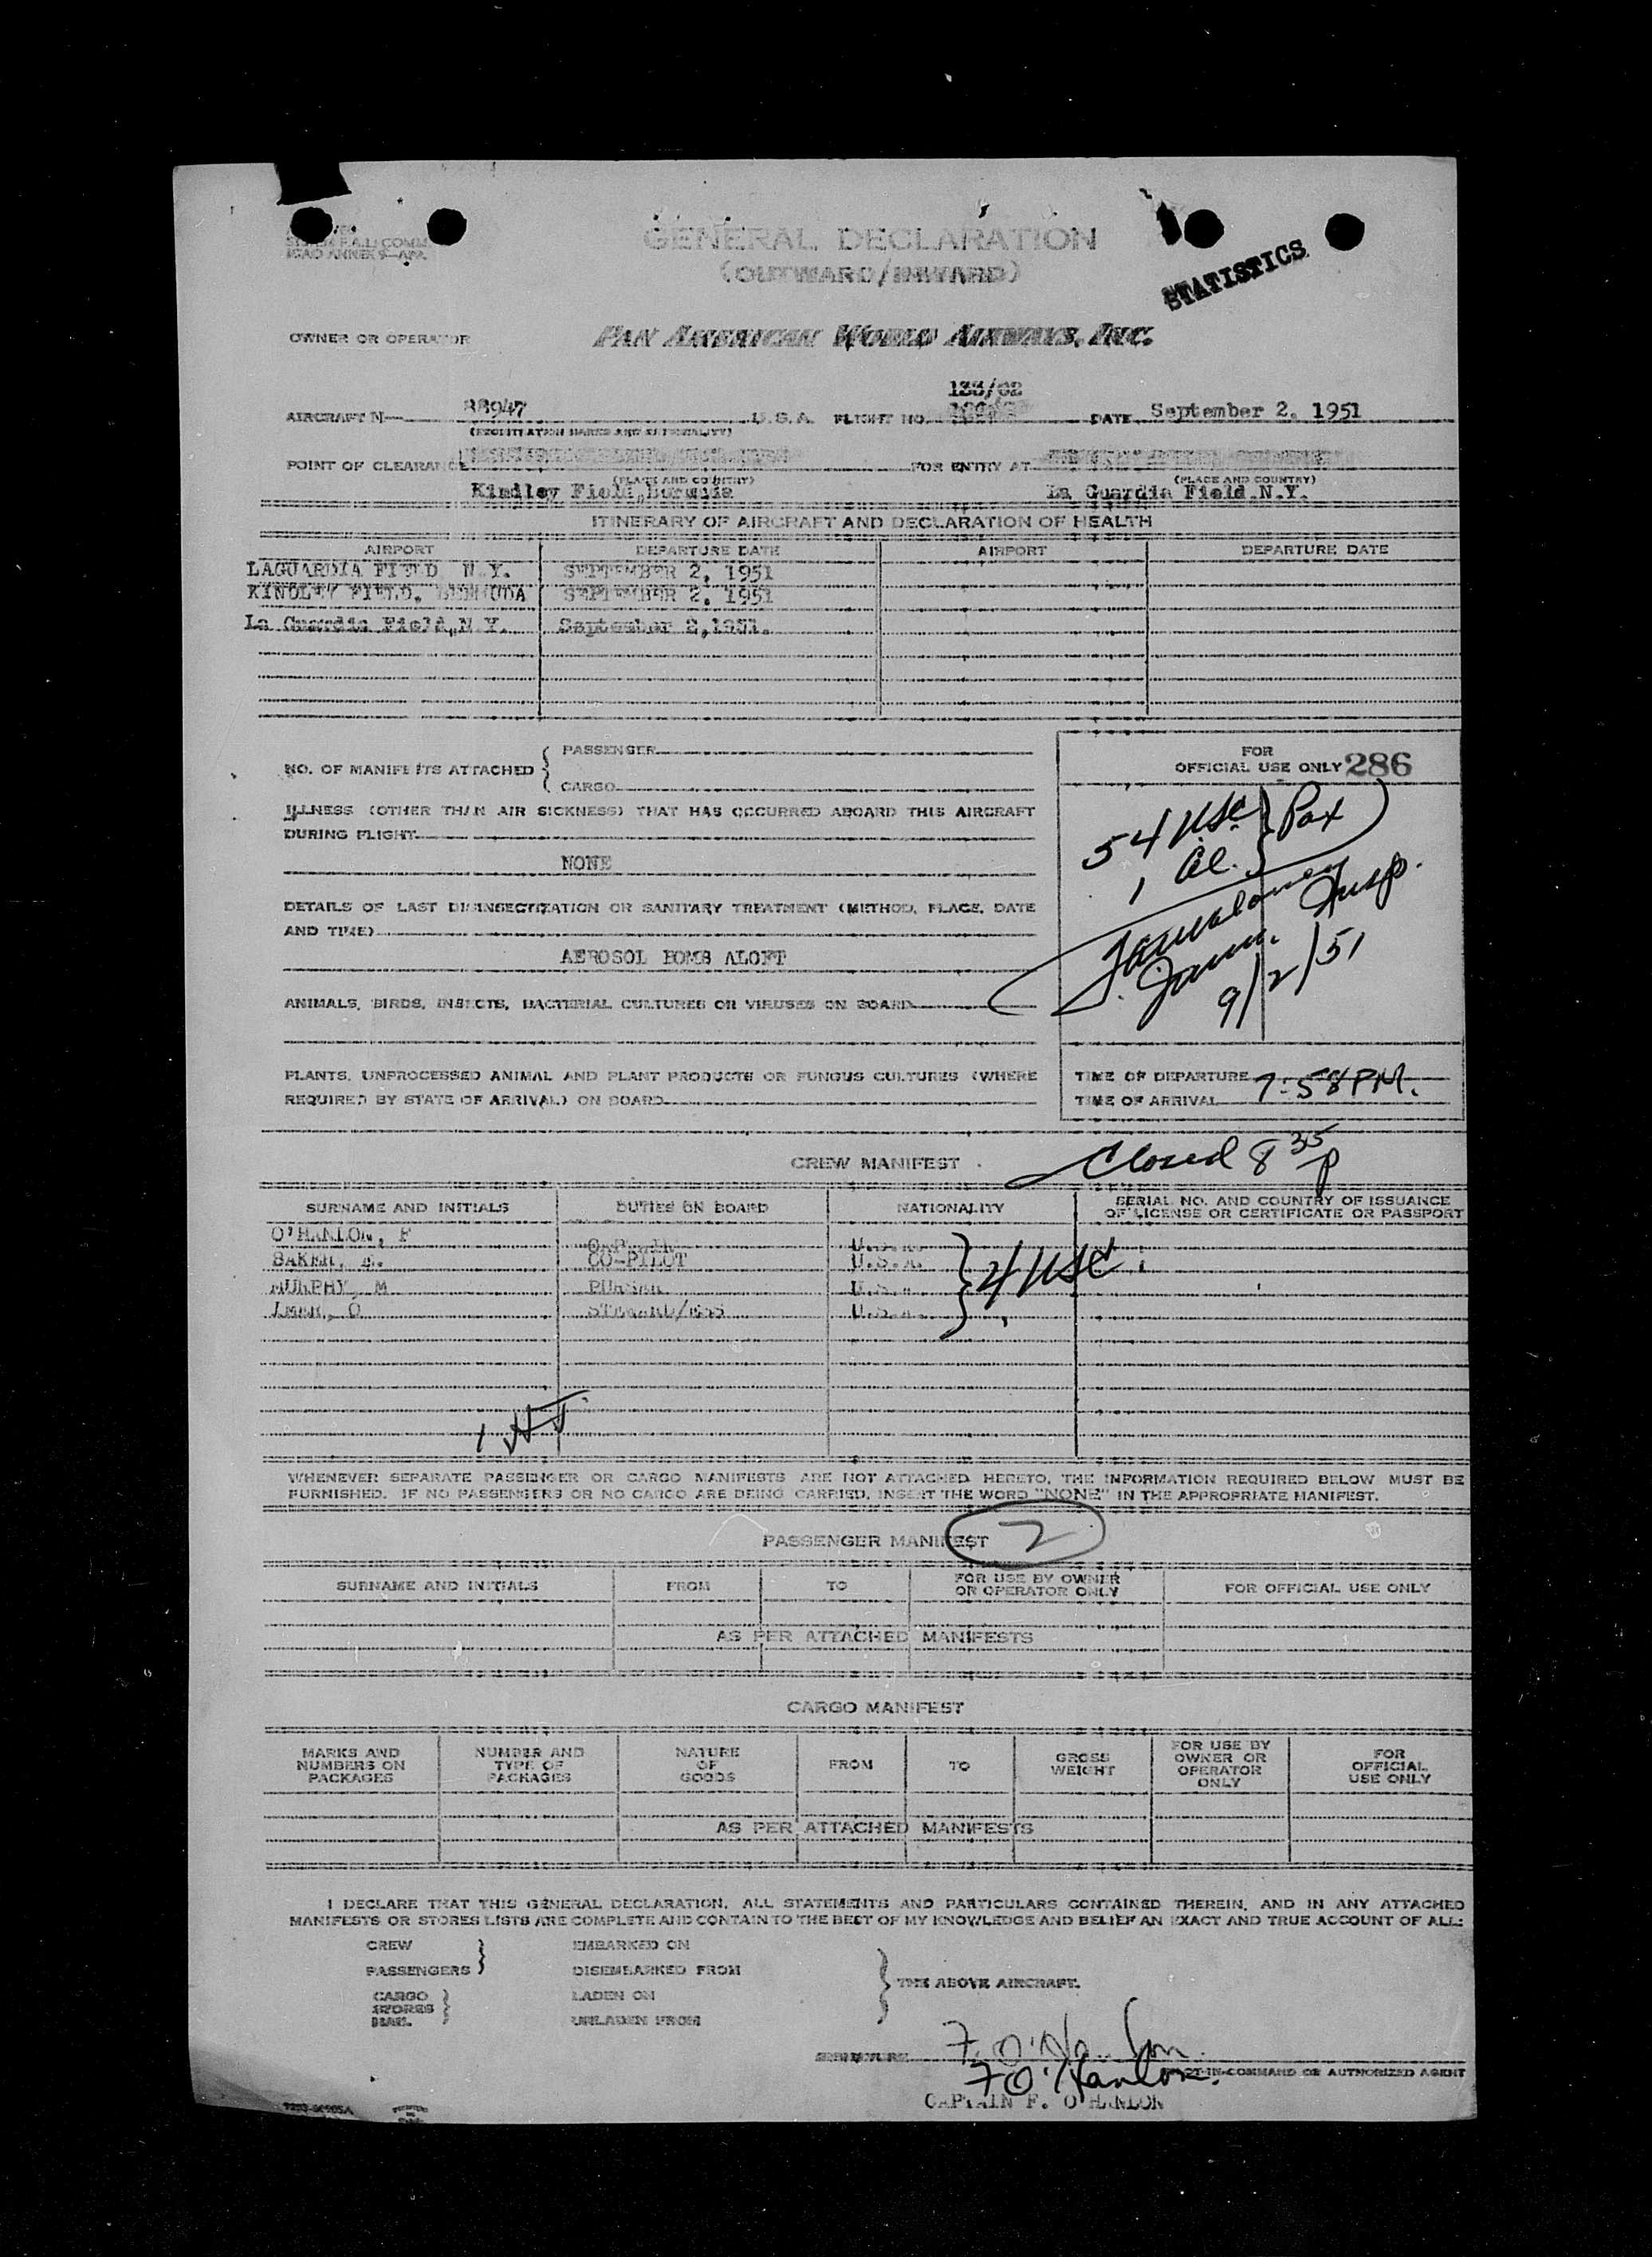 GENERAL DECLARATION
(OUTWARD/INWARD)
STATISTICS
OWNER OR OPERATOR PAN AMERICAN WORLD AIRWAYS, INC.
133/02
AIRCRAFT N— 88947 U.S.A. FLIGHT NO. DATE September 2, 1951
(REGISTRATION MARKS AND NATIONALITY)
POINT OF CLEARANCE FOR ENTRY AT
(PLACE AND COUNTRY) (PLACE AND COUNTRY)
Kindley Field, Bermuda La Guardia Field, N.Y.
ITINERARY OF AIRCRAFT AND DECLARATION OF HEALTH
AIRPORT DEPARTURE DATE AIRPORT DEPARTURE DATE
LAGUARDIA FIELD N.Y. SEPTEMBER 2, 1951
KINDLEY FIELD, BERMUDA SEPTEMBER 2, 1951
La Guardia Field, N.Y. September 2, 1951.
NO. OF MANIFESTS ATTACHED { PASSENGER
CARGO
FOR
OFFICIAL USE ONLY 286
54 USC } Pax
1 Al.
Insp.
Imm.
9/2/51
ILLNESS (OTHER THAN AIR SICKNESS) THAT HAS OCCURRED ABOARD THIS AIRCRAFT
DURING FLIGHT
NONE
DETAILS OF LAST DISINSECTIZATION OR SANITARY TREATMENT (METHOD, PLACE, DATE
AND TIME)
AEROSOL BOMB ALOFT
ANIMALS, BIRDS, INSECTS, BACTERIAL CULTURES OR VIRUSES ON BOARD
PLANTS, UNPROCESSED ANIMAL AND PLANT PRODUCTS OR FUNGUS CULTURES (WHERE
REQUIRED BY STATE OF ARRIVAL) ON BOARD
TIME OF DEPARTURE 7:58 PM.
TIME OF ARRIVAL
Closed 8 35 p
CREW MANIFEST
SURNAME AND INITIALS DUTIES ON BOARD NATIONALITY SERIAL NO. AND COUNTRY OF ISSUANCE
OF LICENSE OR CERTIFICATE OR PASSPORT
O'HANLON, F CAPTAIN U.S.A.
BAKER, E. CO-PILOT U.S.A.
MURPHY, M PURSER U.S.A.
O STEWARD/ESS U.S.A.
} 4 USC
1
WHENEVER SEPARATE PASSENGER OR CARGO MANIFESTS ARE NOT ATTACHED HERETO, THE INFORMATION REQUIRED BELOW MUST BE
FURNISHED. IF NO PASSENGERS OR NO CARGO ARE BEING CARRIED, INSERT THE WORD "NONE" IN THE APPROPRIATE MANIFEST.
PASSENGER MANIFEST 2
SURNAME AND INITIALS FROM TO FOR USE BY OWNER
OR OPERATOR ONLY FOR OFFICIAL USE ONLY
AS PER ATTACHED MANIFESTS
CARGO MANIFEST
MARKS AND
NUMBERS ON
PACKAGES
NUMBER AND
TYPE OF
PACKAGES
NATURE
OF
GOODS
FROM
TO
GROSS
WEIGHT
FOR USE BY
OWNER OR
OPERATOR
ONLY
FOR
OFFICIAL
USE ONLY
AS PER ATTACHED MANIFESTS
I DECLARE THAT THIS GENERAL DECLARATION, ALL STATEMENTS AND PARTICULARS CONTAINED THEREIN, AND IN ANY ATTACHED
MANIFESTS OR STORES LISTS ARE COMPLETE AND CONTAIN TO THE BEST OF MY KNOWLEDGE AND BELIEF AN EXACT AND TRUE ACCOUNT OF ALL:
CREW EMBARKED ON
PASSENGERS } DISEMBARKED FROM
} THE ABOVE AIRCRAFT.
CARGO LADEN ON
STORES }
MAIL UNLADEN FROM
SIGNATURE F. O'Hanlon
F O'Hanlon PILOT-IN-COMMAND OR AUTHORIZED AGENT
CAPTAIN F. O'HANLON